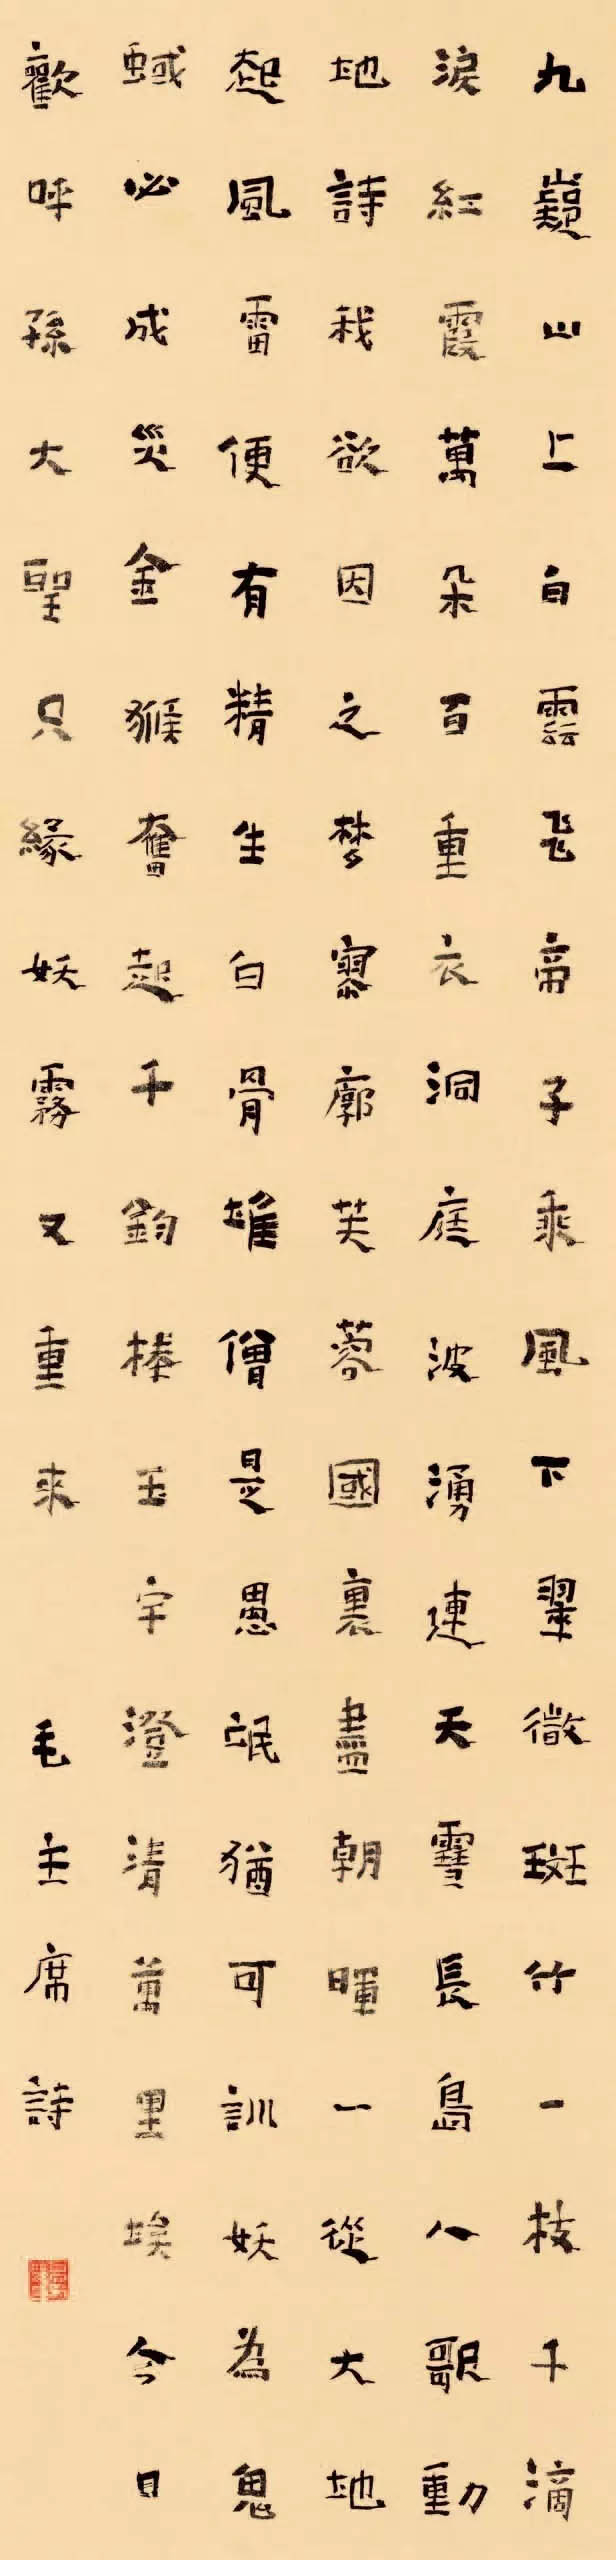 九嶷山上白雲飛帝子乘風下翠微斑竹一枝千滴
淚紅霞萬朵百重衣洞庭波湧連天雪長島人歌動
地詩我欲因之梦寥廓芙蓉國裏盡朝暉一從大地
起風雷便有精生白骨堆僧是愚氓猶可訓妖為鬼
蜮必成災金猴奮起千鈞棒玉宇澄清萬里埃今日
歡呼孫大聖只緣妖霧又重來 毛主席詩